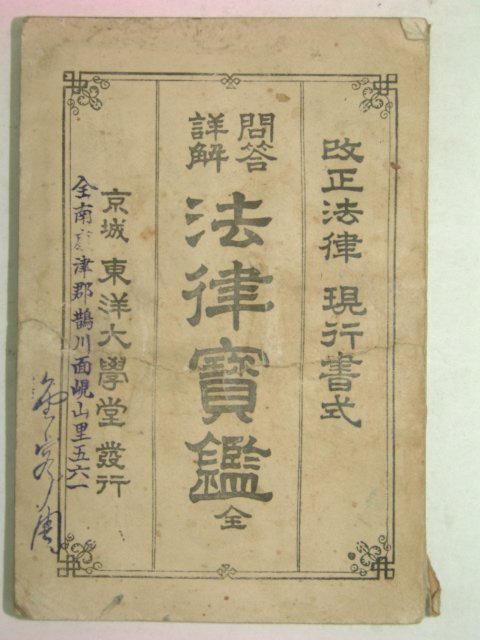 改正法律 現行書式
問答
詳解
法律寶鑑 全
京城 東洋大學堂 發行
全南 津郡鵲川面峴山里五六一